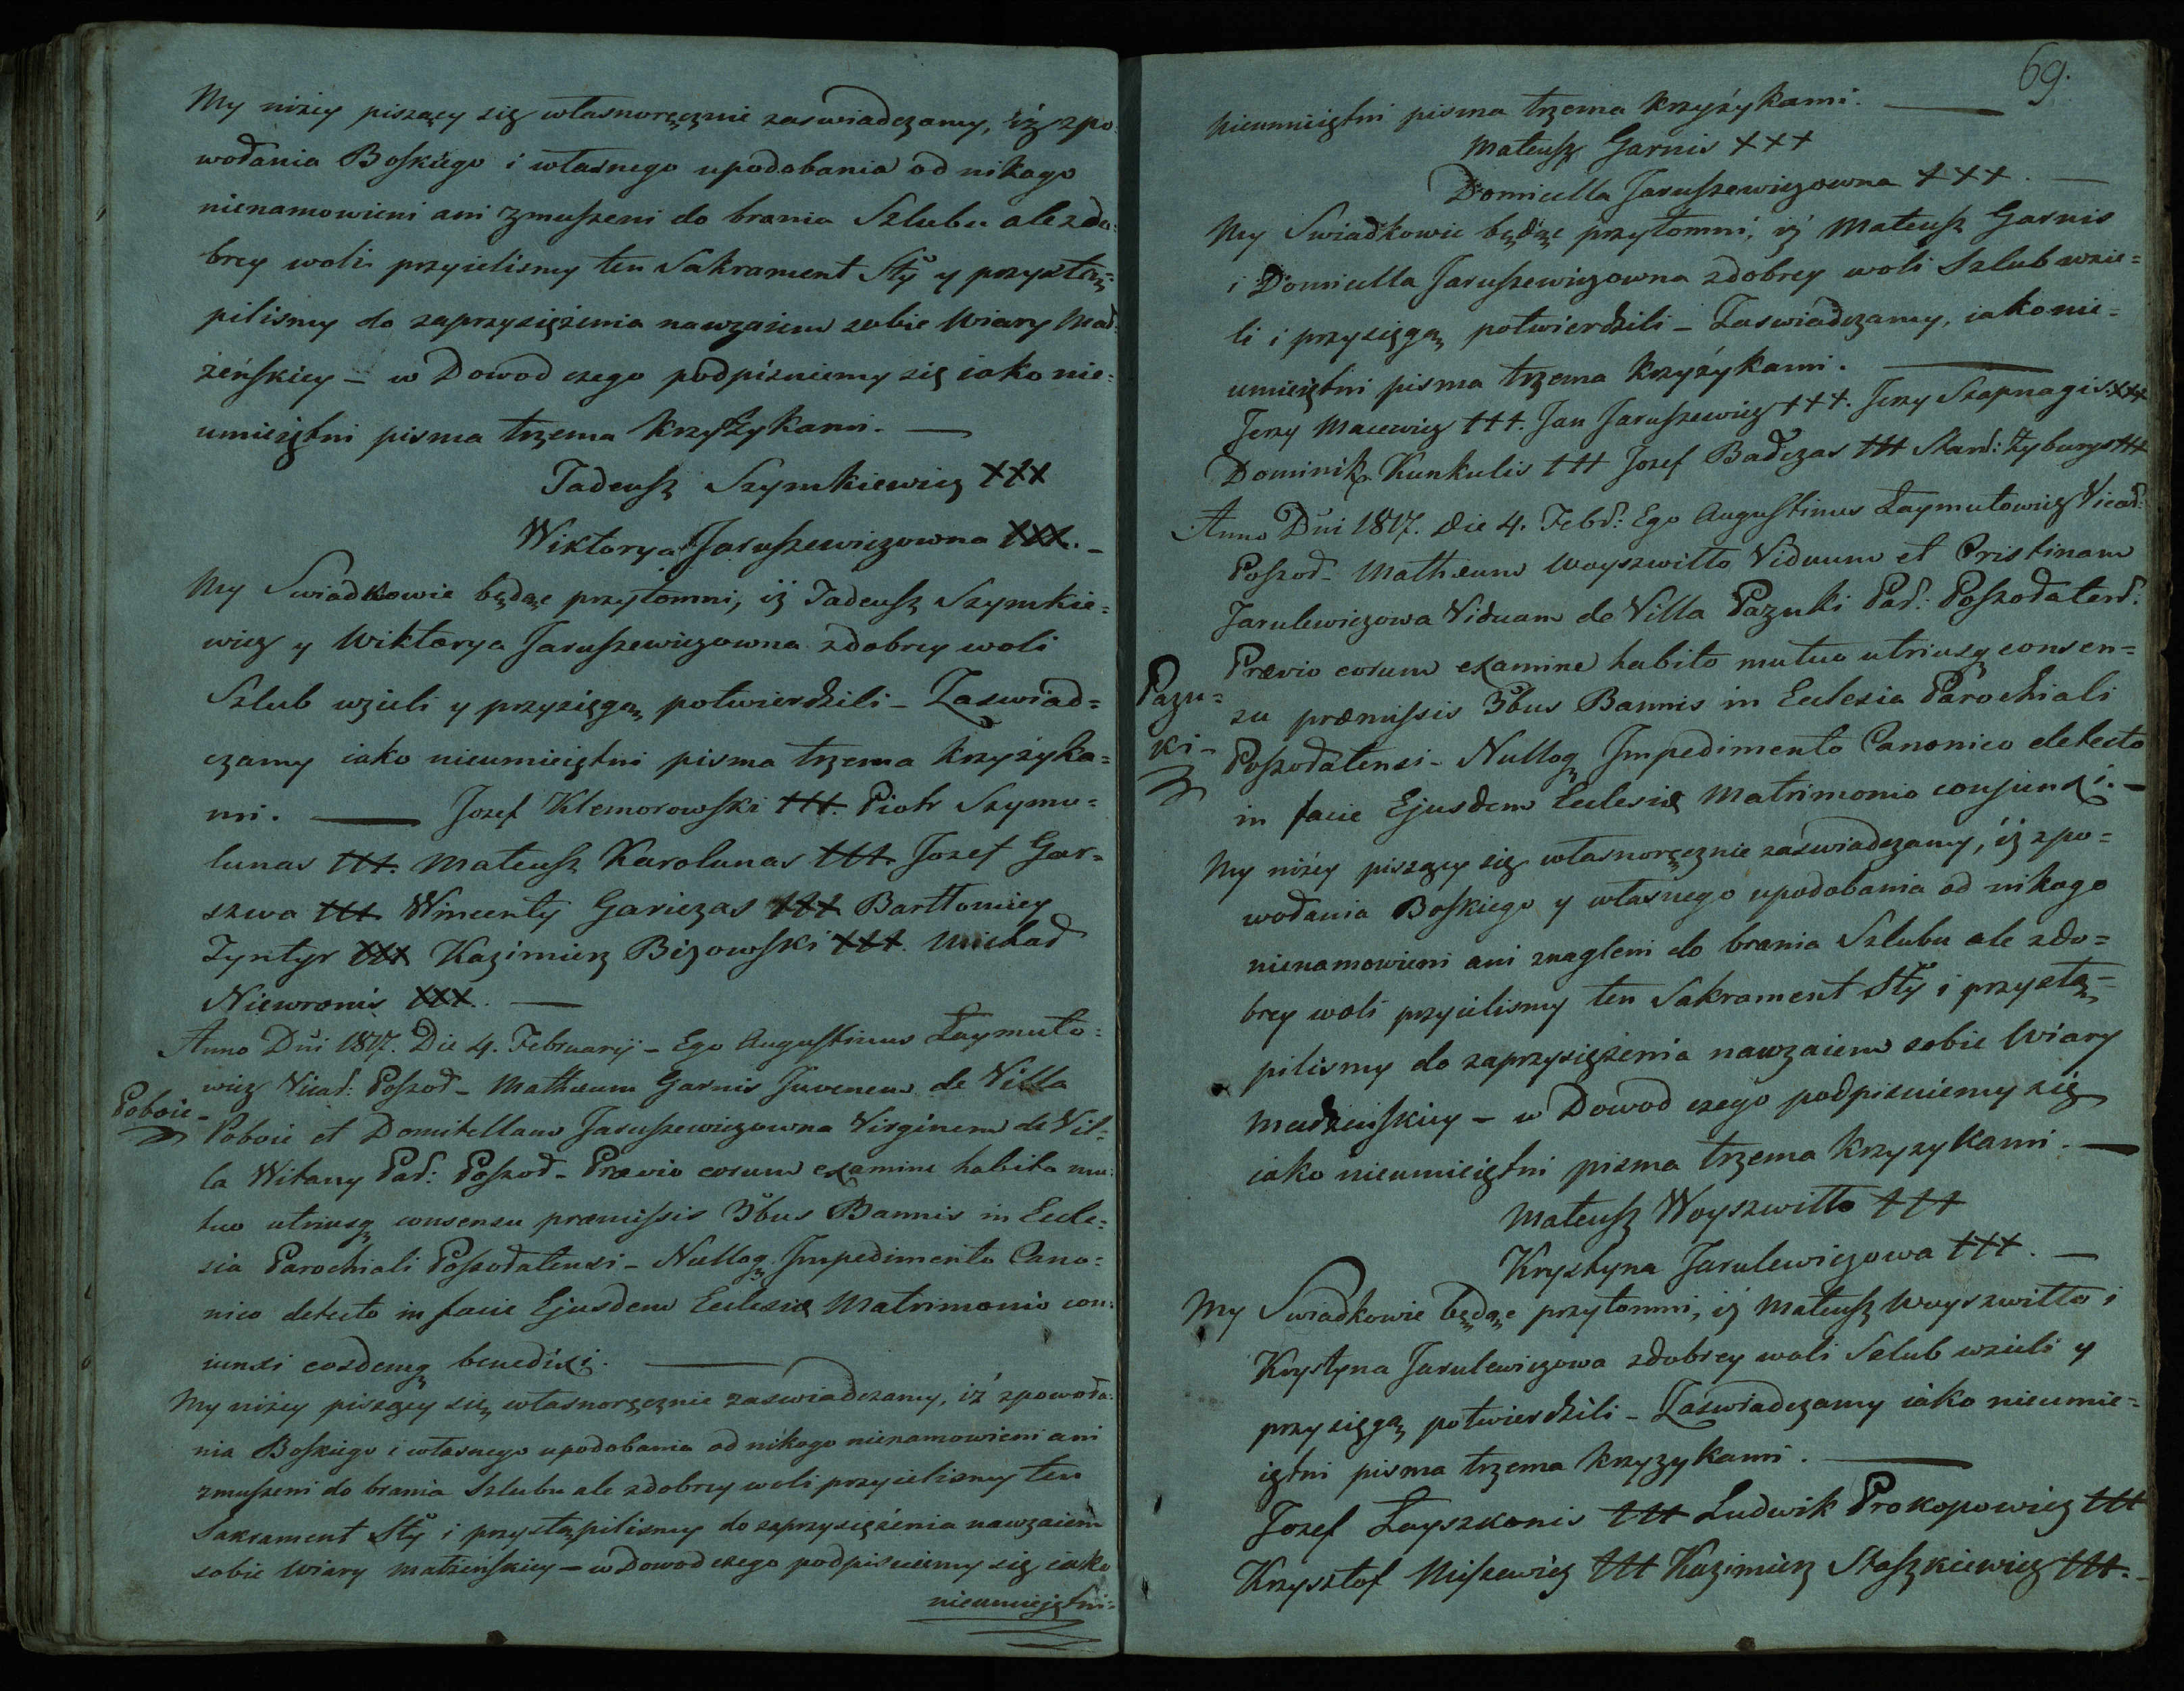 My niżey piszący się własnoręcznie zaswiadczamy, iż zpo-
wołania Boskiego i własnego upodobania od nikogo
nienamowieni ani zmuszeni do brania Szlubu ale z do-
brey woli przyielismy ten Sakrament Sty y przystą-
pilismy do zaprzysiężenia nawzaiem sobie Wiary Mał-
żeńskiey – w Dowod czego podpisuiemy się iako nie-
umieiętni pisma trzema krzyżykami. —
Tadeusz Szymkiewicz +++
Wiktorya Jaruszewiczowna +++. –
My Swiadkowie będąc przytomni, iż Tadeusz Szymkie=
wicz y Wiktorya Jaruszewiczowna zdobrey woli
Szlub wzieli y przysięgą potwierdzili – Zaswiad=
czamy iako nieumieiętni pisma trzema krzyżyka=
mi. — Jozef Klemorowski +++. Piotr Szymu=
lunas +++. Mateusz Karolunas +++. Jozef Gar=
szwa +++ Wincenty Gariczas +++ Bartłomiey
Zyntyr +++ Kazimierz Bizowski +++. Michał
Niewronis +++. —
Anno Dni 1817. Die 4. Februarij – Ego Augustinus Laymuto=
wicz Vicar: Poszoł – Mathæum Garnis Juvenem de Villa
Poboie –
Poboie et Domitellam Jaruszewiczowna Virginem de Vil=
la Witany Par: Poszoł – Prævio eorum examine habito mu=
tuo utriusq consensu præmissis 3bus Bannis in Eccle=
sia Parochiali Poszołatensi – Nulloq Impedimento Cano=
nico detecto in facie Ejusdem Ecclesiæ Matrimonio con=
iunxi eosdemq benedixi. —
My niżey piszący się własnoręcznie zaswiadczamy, iż zpowoła=
nia Boskiego i własnego upodobania od nikogo nienamowieni ani
zmuszeni do brania Szlubu ale zdobrey woli przyielismy ten
Sakrament Sty i przystąpilismy do zaprzysiężenia nawzaiem
sobie Wiary małżenskiey – w Dowod czego podpisuiemy się iako
nieumiejętni=
69.
nieumieiętni pisma trzema krzyżykami. —
Mateusz Garnis +++
Domicella Jaruszewiczowna +++. —
My Swiadkowie będąc przytomni, iż Mateusz Garnis
i Domicella Jaruszewiczowna zdobrey woli Szlub wzie=
li i przysięgą potwierdzili – Zaswiadczamy, iako nie=
umieiętni pisma trzema krzyżykami. —
Jerzy Macewicz +++. Jan Jaruszewicz +++. Jerzy Szapnagis +++
Dominik Kunkulis +++ Jozef Badczas +++ Żyburys +++
Anno Dni 1817. Die 4. Febr: Ego Augustinus Laymutowicz Vicar:
Poszoł – Mathæum Woyszwitto Viduum et Cristinam
Jarulewiczowa Viduam de Villa Pazuki Par: Poszołaten:
Prævio eorum examine habito mutuo utriusq consen=
Pazu=
su præmissis 3bus Bannis in Ecclesia Parochiali
ki –
Poszołatensi – Nulloq Impedimento Canonico detecto
in facie Ejusdem Ecclesiæ Matrimonio conjunxi. –
My niżey piszący się własnoręcznie zaswiadczamy, iż zpo=
wołania Boskiego y własnego upodobania od nikogo
nienamowieni ani znagleni do brania Szlubu ale zdo=
brey woli przyielismy ten Sakrament Sty i przystą=
pilismy do zaprzysiężenia nawzaiem sobie Wiary
Małżeńskiey – w Dowod czego podpisuiemy się
iako nieumieiętni pisma trzema krzyzykami. —
Mateusz Woyszwitto +++
Krystyna Jarulewiczowa +++. —
My Swiadkowie będąc przytomni, iż Mateusz Woyszwitto i
Krystyna Jarulewiczowa zdobrey woli Szlub wzieli y
przysięgą potwierdzili – Zaswiadczamy iako nieumie=
iętni pisma trzema krzyzykami. —
Jozef Łayszkonis +++ Ludwik Prokopowicz +++
Krzysztof Misewicz +++ Kazimierz Staszkiewicz +++. –